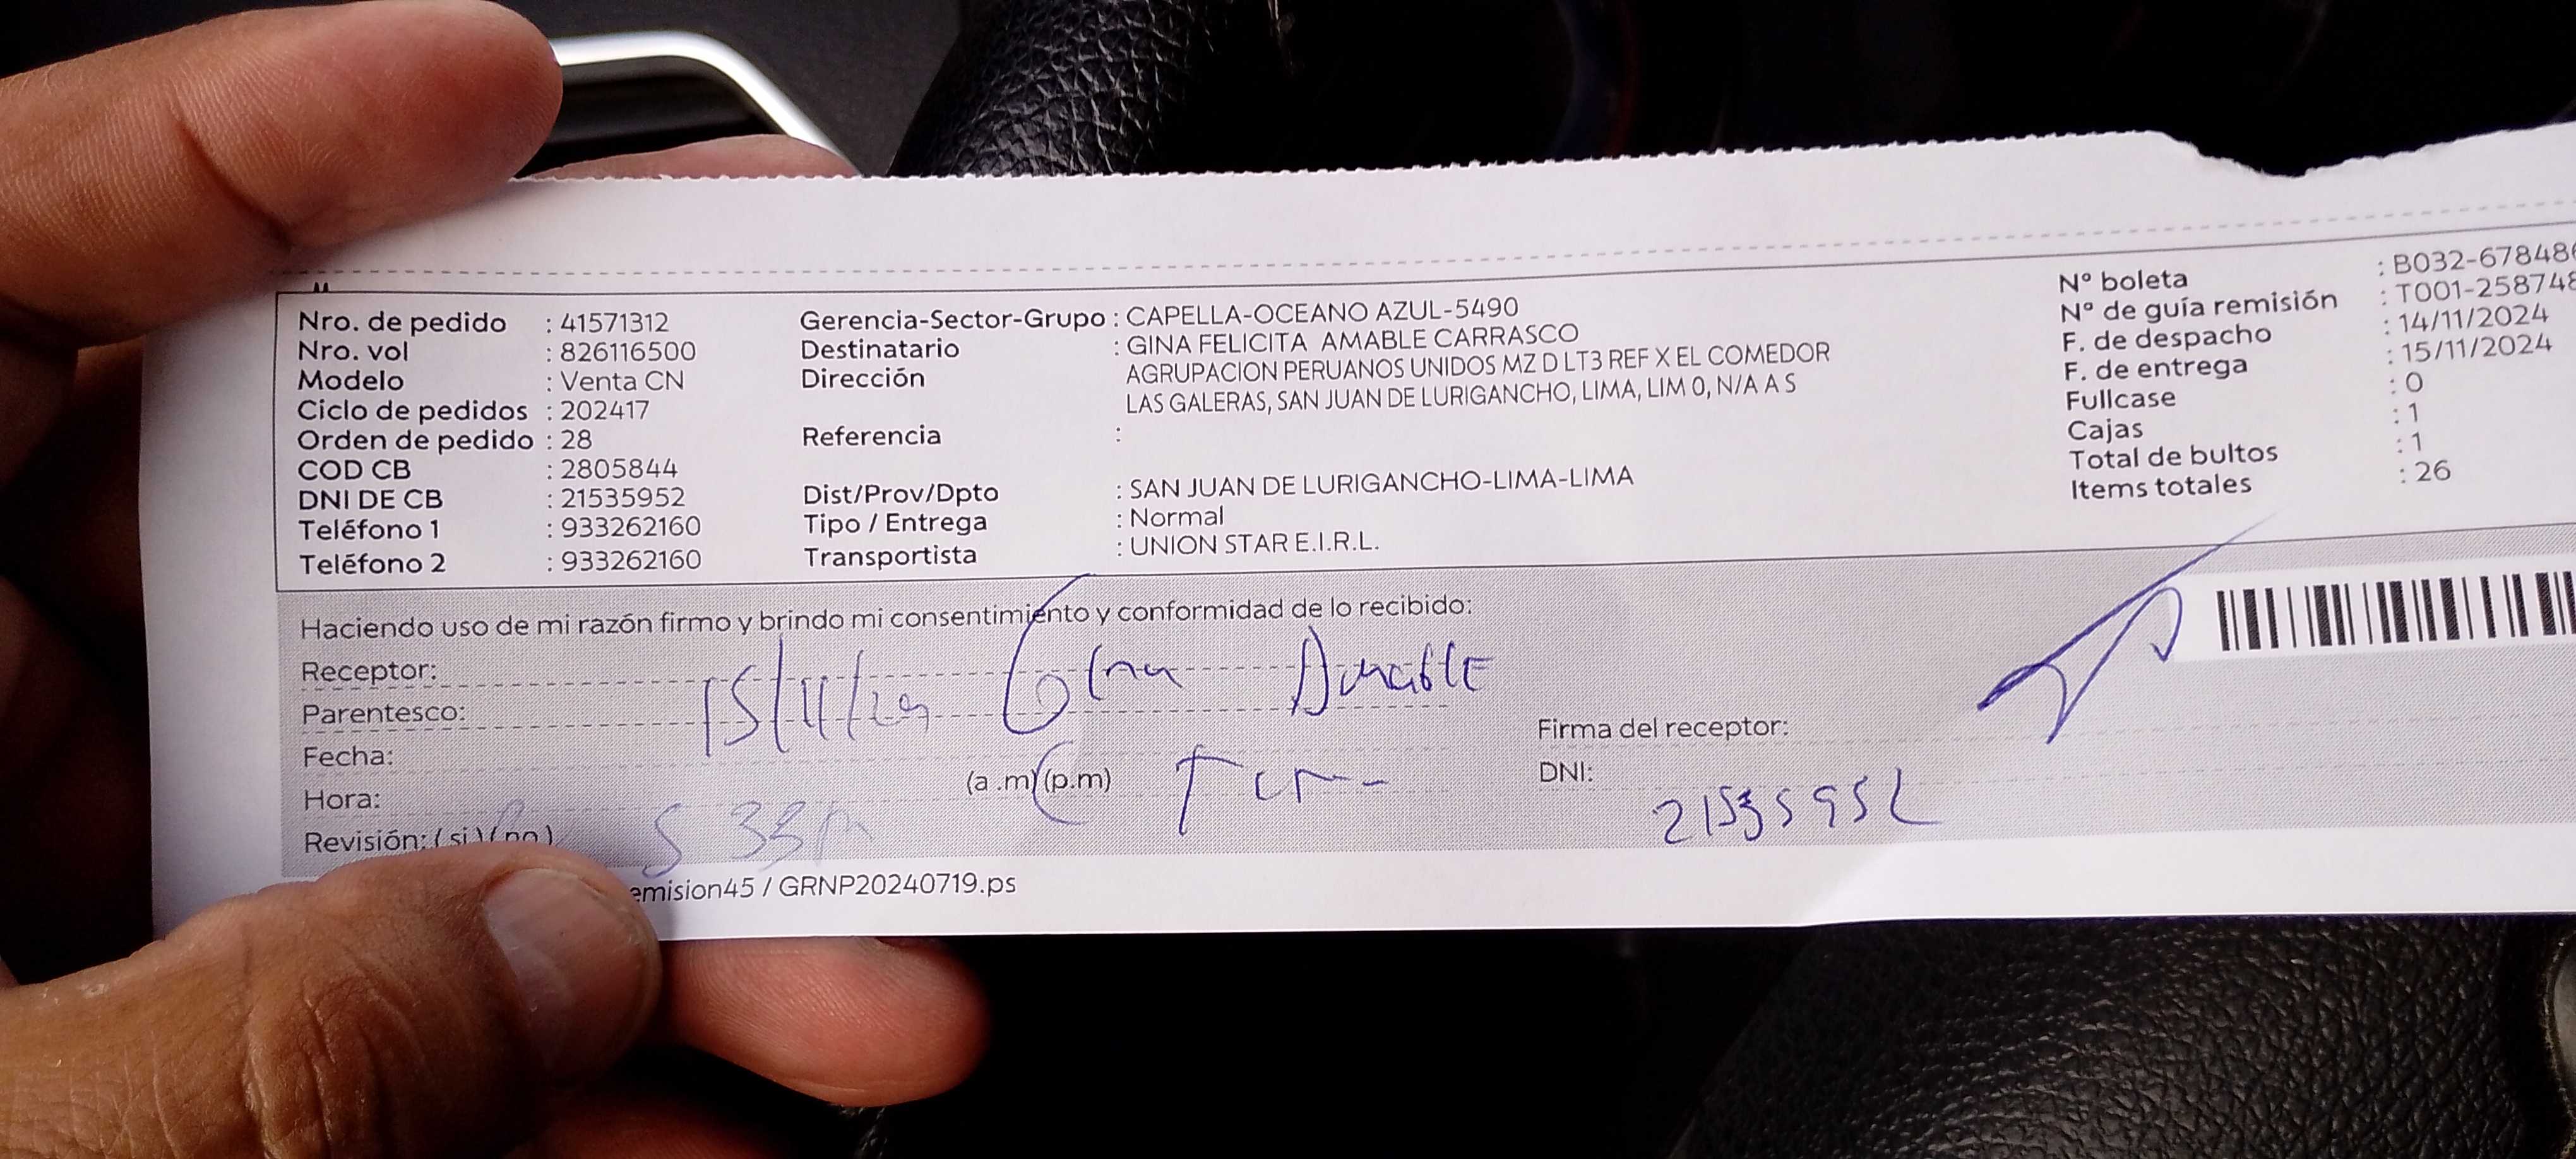 Nro. de pedido : 41571312
Nro. vol : 826116500
Modelo : Venta CN
Ciclo de pedidos : 202417
Orden de pedido : 28
COD CB : 2805844
DNI DE CB : 21535952
Teléfono 1 : 933262160
Teléfono 2 : 933262160
Gerencia-Sector-Grupo : CAPELLA-OCEANO AZUL-5490
Destinatario : GINA FELICITA AMABLE CARRASCO
Dirección AGRUPACION PERUANOS UNIDOS MZ D LT3 REF X EL COMEDOR
LAS GALERAS, SAN JUAN DE LURIGANCHO, LIMA, LIM 0, N/A A S
Referencia :
Dist/Prov/Dpto : SAN JUAN DE LURIGANCHO-LIMA-LIMA
Tipo / Entrega : Normal
Transportista : UNION STAR E.I.R.L.
Nº boleta : B032-67848
Nº de guía remisión : T001-258748
F. de despacho : 14/11/2024
F. de entrega : 15/11/2024
Fullcase : 0
Cajas : 1
Total de bultos : 1
Items totales : 26
Haciendo uso de mi razón firmo y brindo mi consentimiento y conformidad de lo recibido:
Receptor: Amable
Parentesco: 15/11/24
Fecha:
Hora: (a .m) (p.m)
Revisión: ( si ) ( no )
Firma del receptor:
DNI: 21535952
emision45 / GRNP20240719.ps